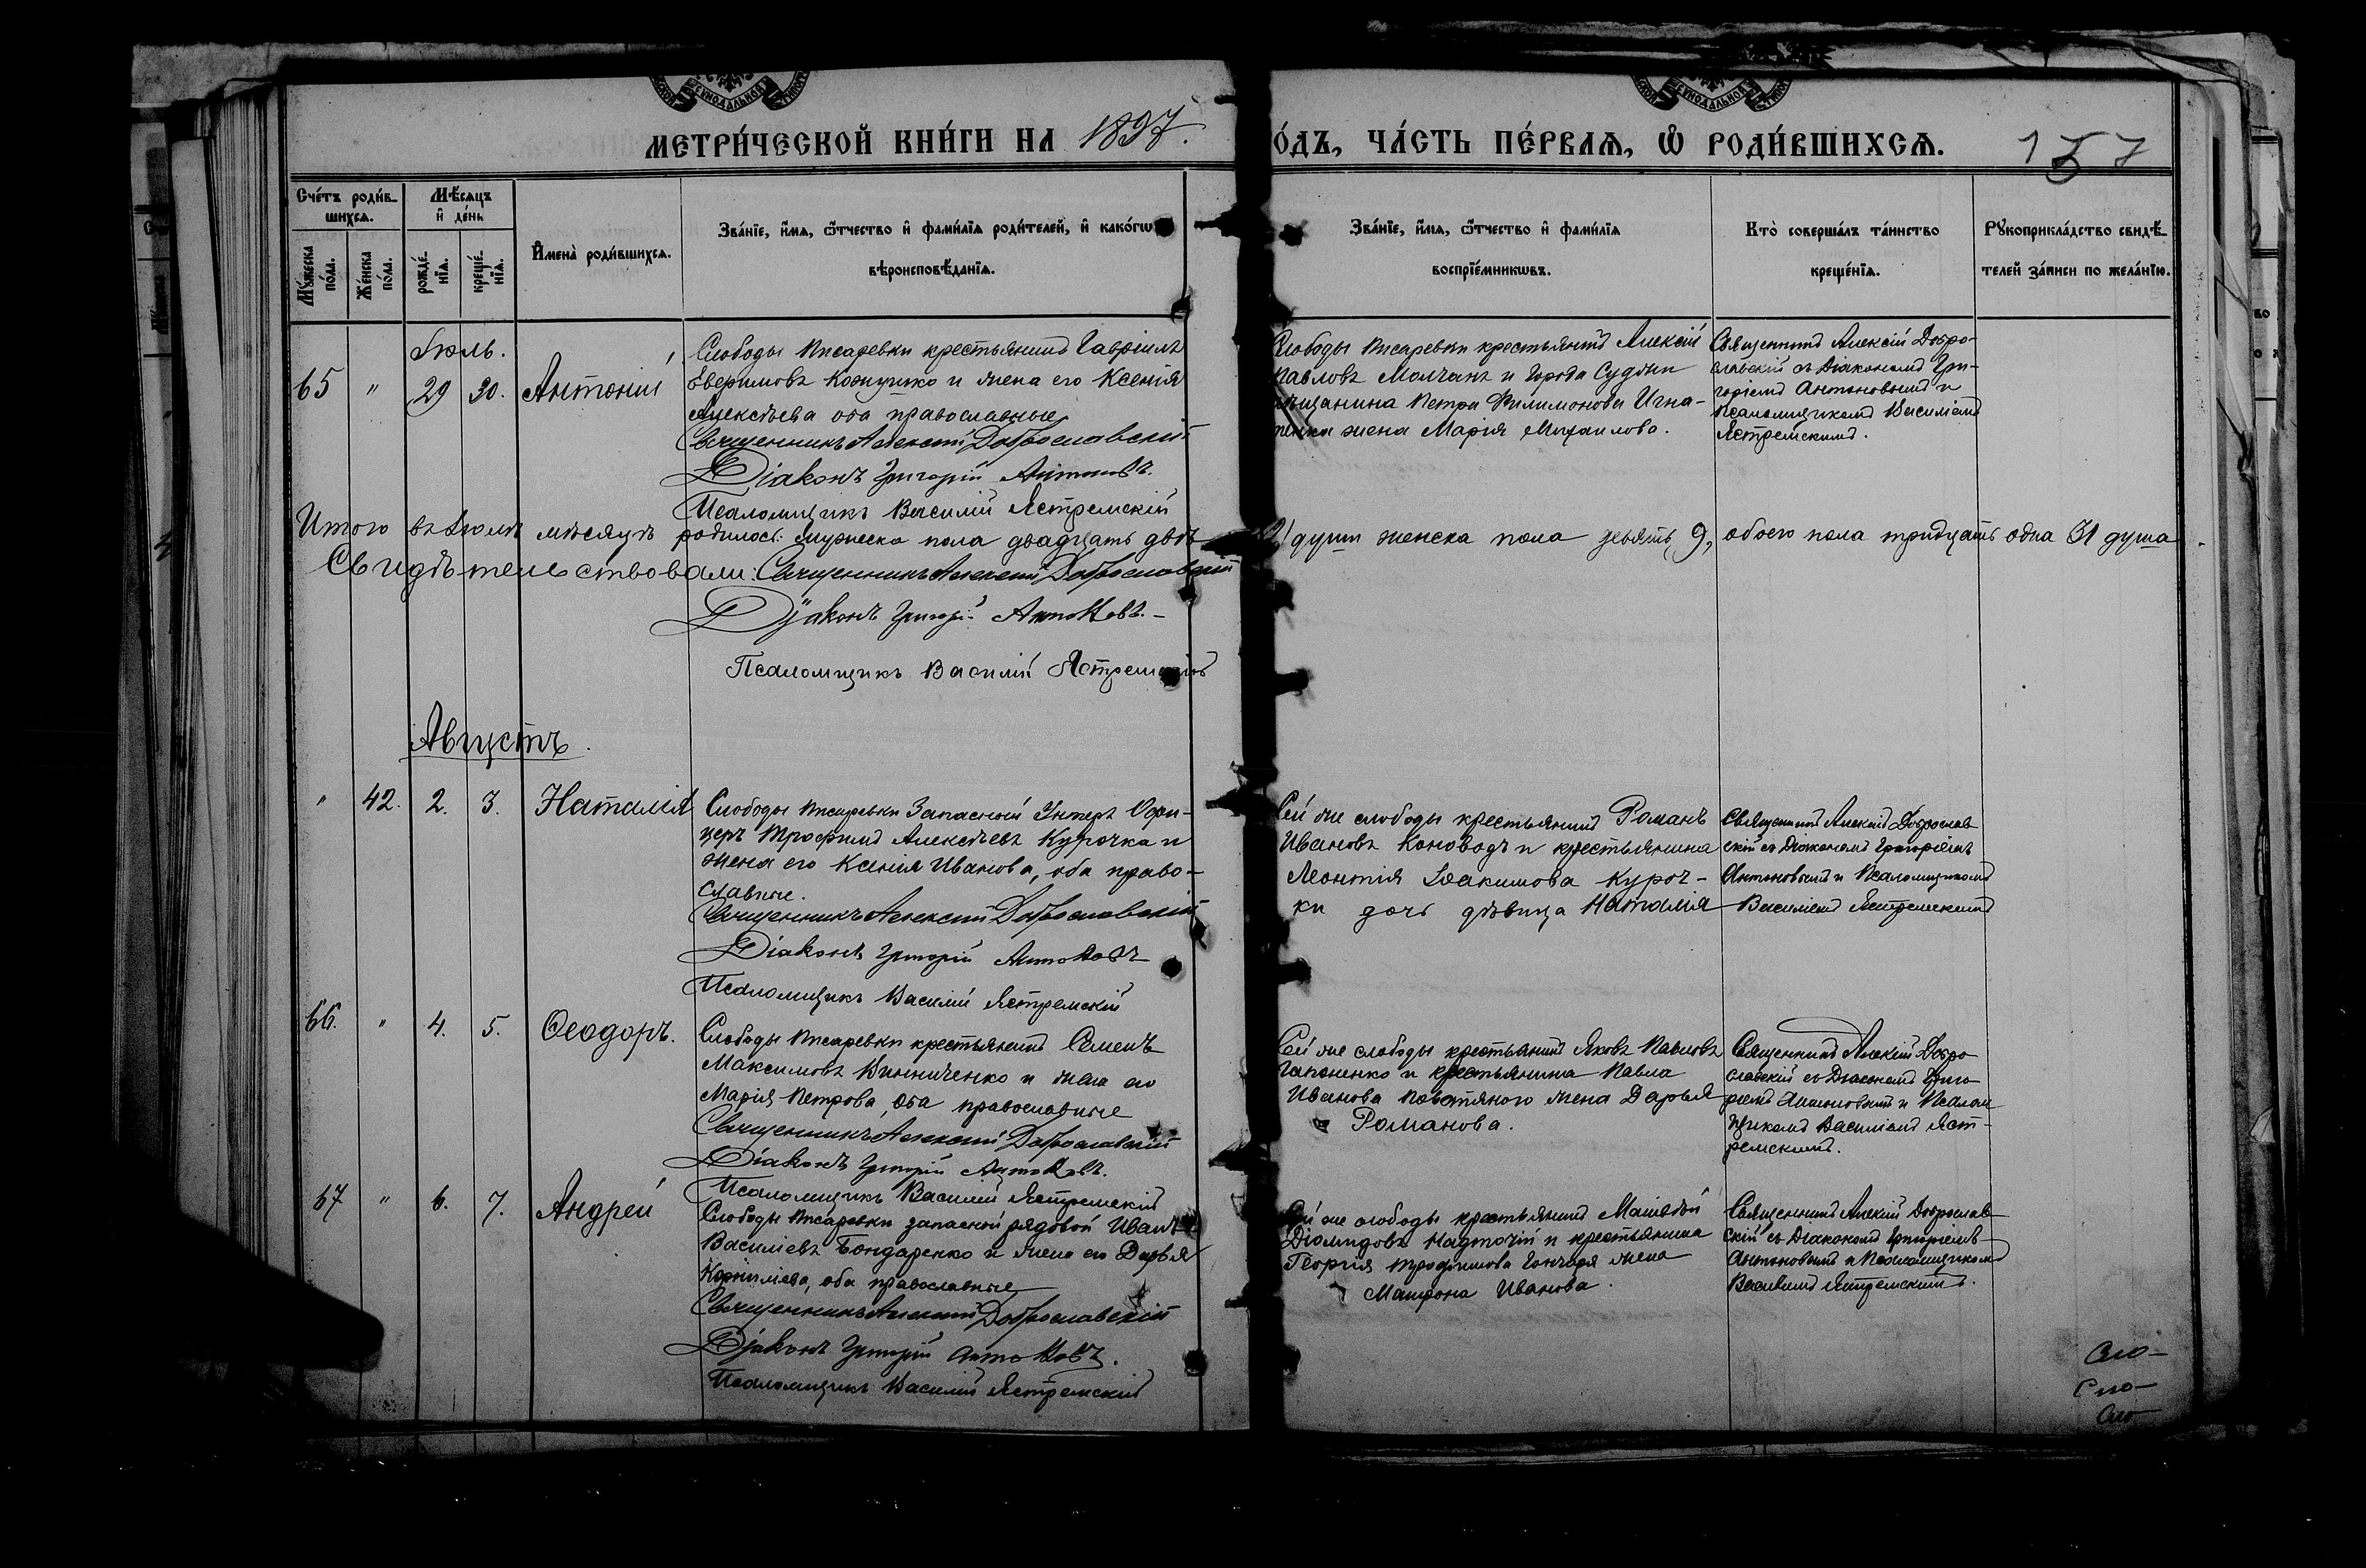 МЕТРИ́ЧЕСКОЙ КНИ́ГИ НА 1897.
О́ДЪ, ЧА́СТЬ ПЕ́РВАѦ, Ѡ҆ РОДИ́ВШИХСѦ.
157
Сче́тъ роди́в-
шихсѧ.
Мꙋ́жеска
по́ла.
Же́нска
по́ла.
Мѣ́сѧцъ
и҆ де́нь
рожде́-
нїѧ.
креще́-
нїѧ.
И҆мена̀ роди́вшихсѧ.
Зва́нїе, и҆́мѧ, ѻ҆́тчество и҆ фами́лїѧ роди́телей, и҆ како́гѡ
вѣроисповѣ́данїѧ.
Зва́нїе, и҆́мѧ, ѻ҆́тчество и҆ фами́лїѧ
воспрїе́мникѡвъ.
Кто̀ соверша́лъ та́инство
креще́нїѧ.
Рꙋкоприкла́дство свидѣ́-
телей за́писи по жела́нїю.
Іюль.
65 " 29 30. Антоній
Слободы Писаревки крестьянинъ Гавріилъ
Евфимовъ Кожушко и жена его Ксенія
Алексѣева оба православные
Священникъ Алексій Доброславскій
Діаконъ Григорій Антоновъ.
Псаломщикъ Василій Ястремскій
Слободы Писаревки крестьянинъ Алексій
Павловъ Молчанъ и города Суджи
мѣщанина Петра Филимонова Игна-
тенка жена Марія Михаилова.
Священникъ Алексій Добро-
славскій съ Діакономъ Гри-
горіемъ Антоновымъ и
Псаломщикомъ Василіемъ
Ястремскимъ.
Итого въ Іюлѣ мѣсяцѣ родилось: мужеска пола двадцать двѣ 22 души женска пола девять, 9, обоего пола тридцать одна 31 душа.
Свидѣтельствовали: Священникъ Алексій Доброславскій
Діаконъ Григорій Антоновъ. -
Псаломщикъ Василій Ястремскій
Августъ.
" 42. 2. 3. Наталія
Слободы Писаревки Запасный Унтеръ Офи-
церъ Трофимъ Алексѣевъ Курочка и
жена его Ксенія Иванова, оба право-
славные.
Священникъ Алексій Доброславскій
Діаконъ Григорій Антоновъ
Псаломщикъ Василій Ястремскій
Сей же слободы крестьянинъ Романъ
Ивановъ Коноводъ и крестьянина
Леонтія Іоакимова Куроч-
ки дочь дѣвица Наталія
Священникъ Алексій Доброслав
скій съ Діакономъ Григоріемъ
Антоновымъ и Псаломщикомъ
Василіемъ Ястремскимъ
66. " 4. 5. Ѳеодоръ.
Слободы Писаревки крестьянинъ Семенъ
Максимовъ Винниченко и жена его
Марія Петрова, оба православные
Священникъ Алексій Доброславскій
Діаконъ Григорій Антоновъ.
Псаломщикъ Василій Ястремскій
Сей же слободы крестьянинъ Яковъ Павловъ
Гапоненко и крестьянина Павла
Иванова жена Дарья
Романова.
Священникъ Алексій Добро
славскій съ Діакономъ Григо
ріемъ Антоновымъ и Псалом
щикомъ Василіемъ Яст-
ремскимъ.
67 " 6. 7. Андрей
Слободы Писаревки запасной рядовой Иванъ
Василіевъ Бондаренко и жена его Дарья
Корниліева, оба православные
Священникъ Алексій Доброславскій
Діаконъ Григорій Антоновъ.
Псаломщикъ Василій Ястремскій
Сей же слободы крестьянинъ Матвѣй
Діомидовъ Надточій и крестьянина
Георгія Трофимова Гончаря жена
Матрона Иванова.
Священникъ Алексій Доброслав
скій съ Діакономъ Григоріемъ
Антоновымъ и Псаломщикомъ
Василіемъ Ястремскимъ.
Сло-
Сло-
Сло-